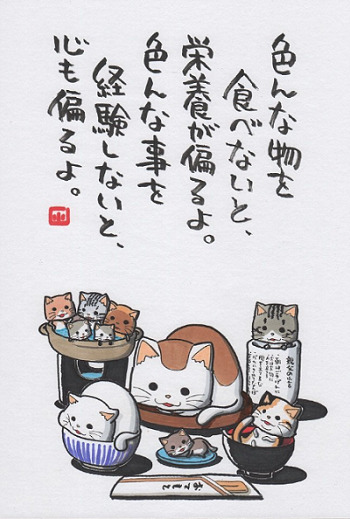 色んな物を
食べないと、
栄養が偏るよ。
色んな事を
経験しないと、
心も偏るよ。
おてもと